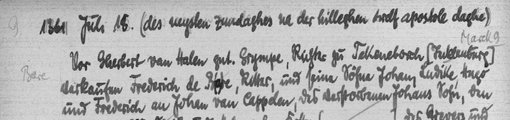 9) 1361 Juli 18. (des neysten zundaghes na der hilleghen twelf apostole daghe)
Mark 9
Vor Herbert van Halen gnt. Crympe, Richter zu Tekeneborch [Tecklenburg]
Bare verkaufen Frederich de Bare, Ritter, und seine Söhne Johan, Ludike, Hugo
und Frederich an Johan van Cappelen, des verstorbenen Johans Sohn, den
des Grevers und